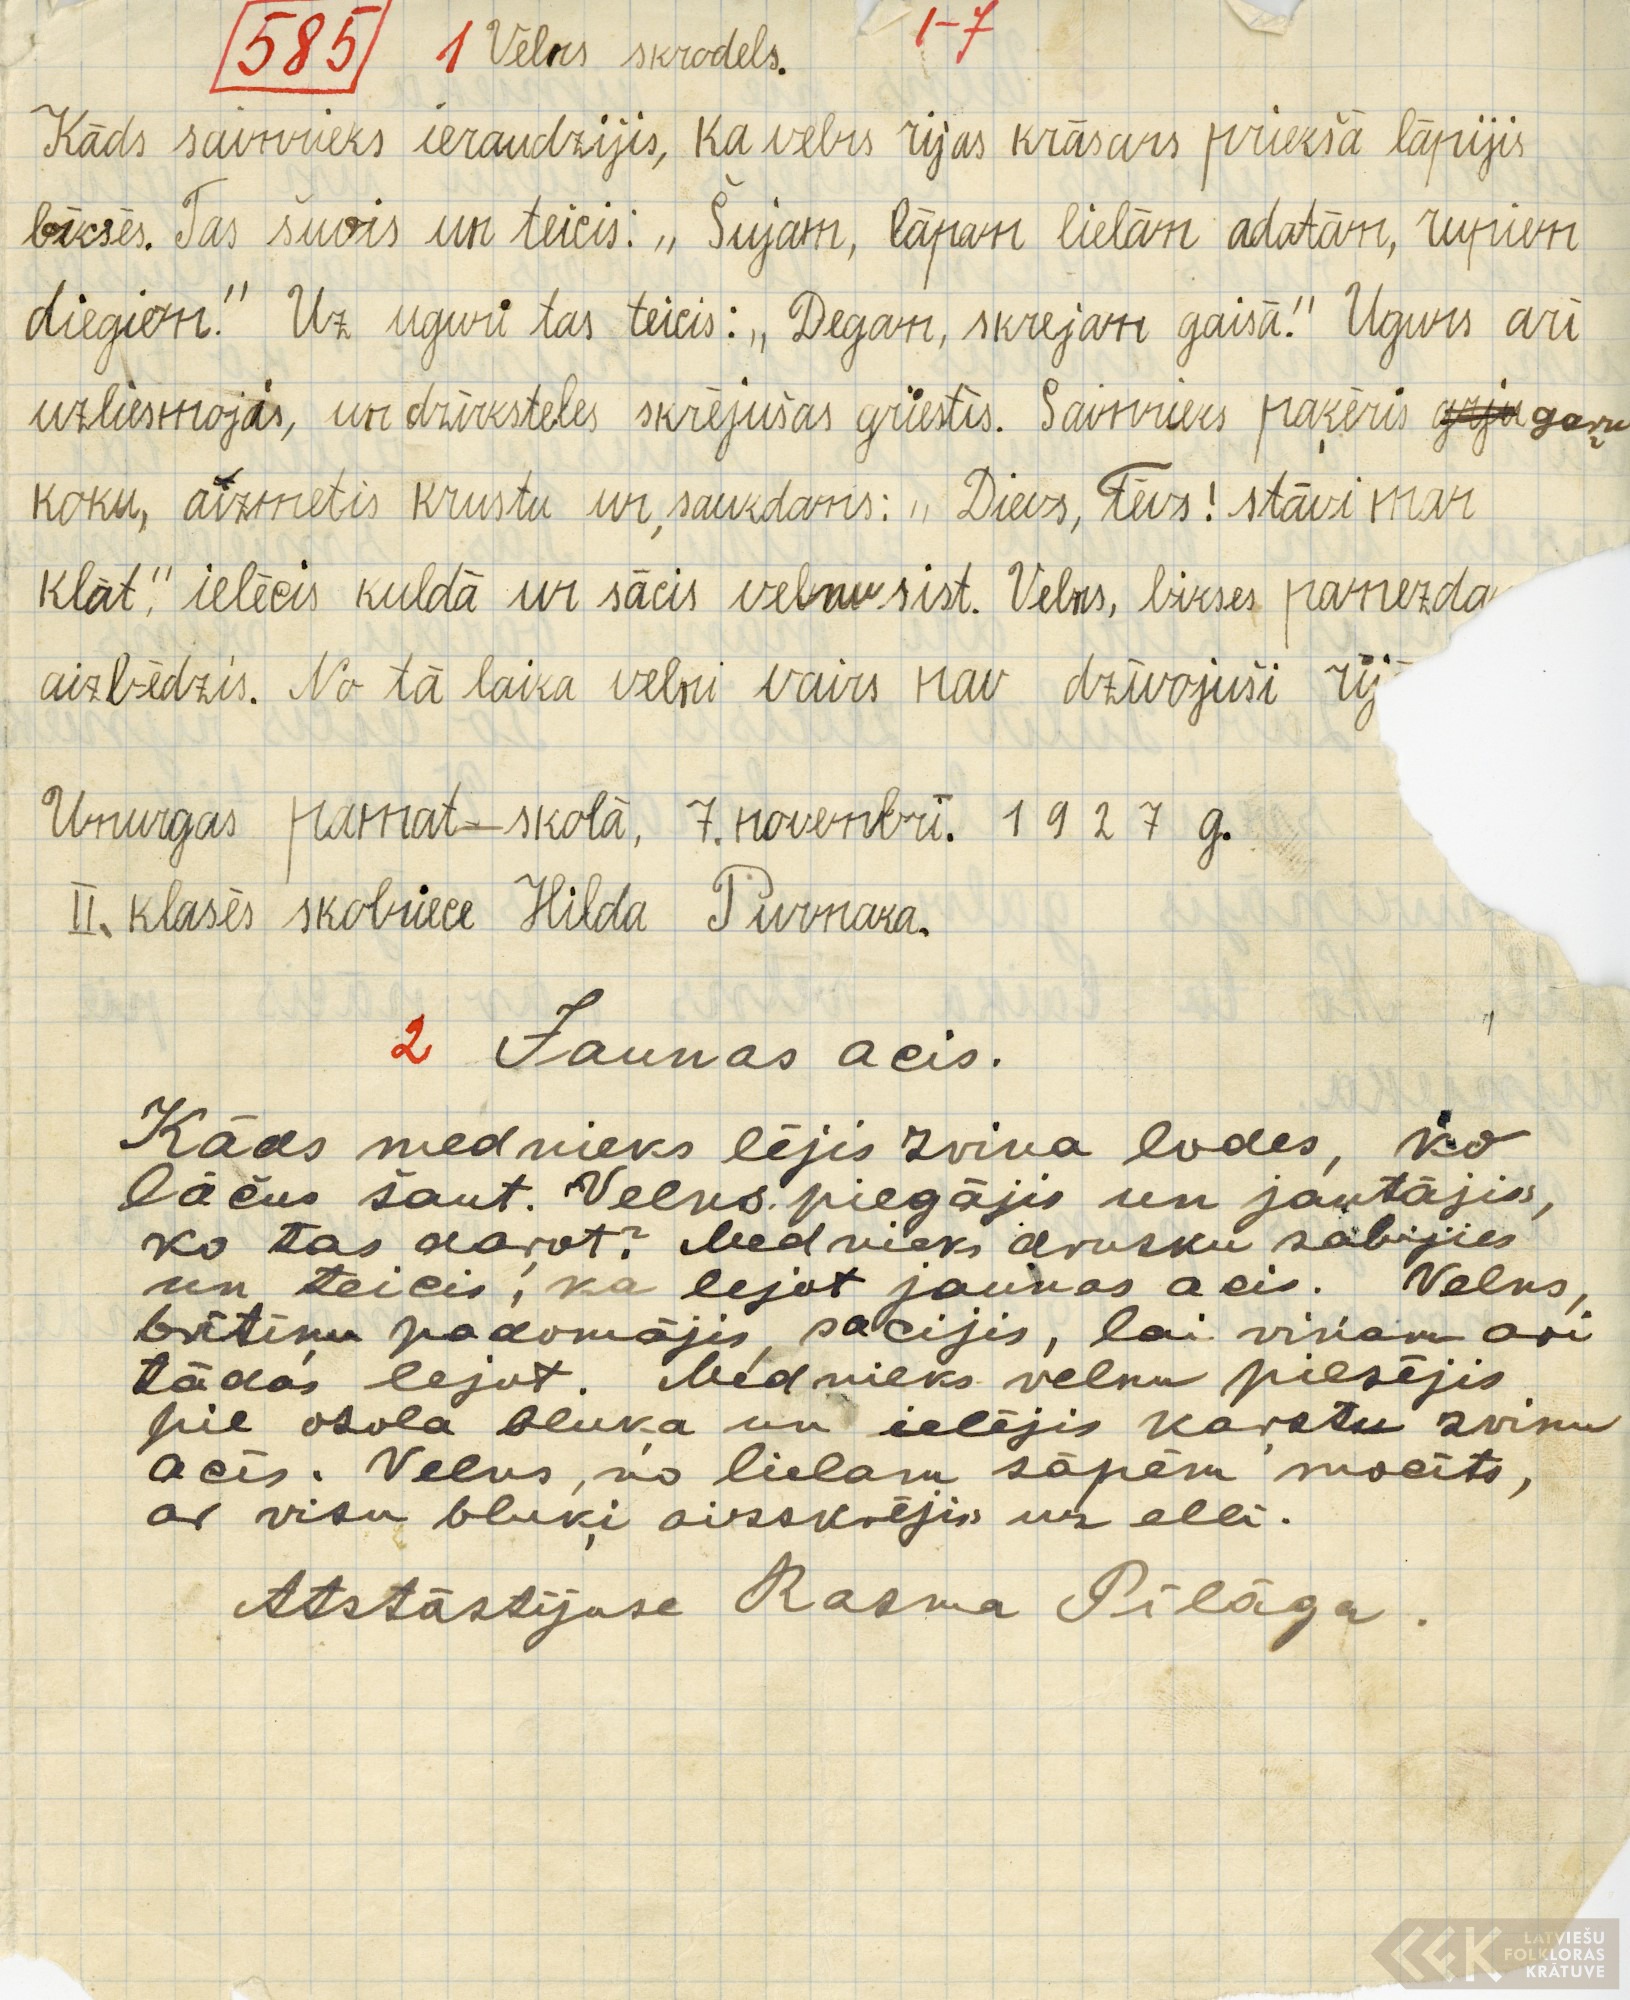 585 1 Velns skrodels. 1-7
Kāds saimnieks ieraudzījis, ka velns rijas krāsans priekšā lāpijis
bikses. Tas šuvis un teicis: „Šujam, lāpam lielām adatām, rupiem
diegiem." Uz uguni tas teicis: „Degam, skrejam gaisā." Uguns arī
uzliesmojās, un dzirksteles skrējušas griestīs. Saimnieks paķēris gaŗu
koku, aizmetis krustu un, saukdams: „Dievs, Tēvs! stāvi man
klāt," ielēcis kuldā un sācis velnu sist. Velns, bikses pamezda
aizbēdzis. No tā laika velni vairs nav dzīvojuši rij
Umurgas pamat-skolā, 7. novembrī. 1927 g.
II. klasēs skolniece Hilda Purmaka.
2 Jaunas acis.
Kāds mednieks lējis svina lodes, ko
lāčus šaut. Velns piegājis un jautājis,
ko tas daŗot? Mednieks drusku sabijies
un teicis, ka lejot jaunas acis. Velns,
brītiņu padomājis, sacijis, lai viņam ari
tādas lejot. Mednieks velnu piesējis
pie osola bluķa un ielējis kaŗstu svinu
acīs. Velns, no lielam sāpēm mocīts,
ar visu bluķi aizskrējis uz elli.
Atstāstījuse Rasma Pīlāga.
LATVIEŠU
FOLKLORAS
KRĀTUVE